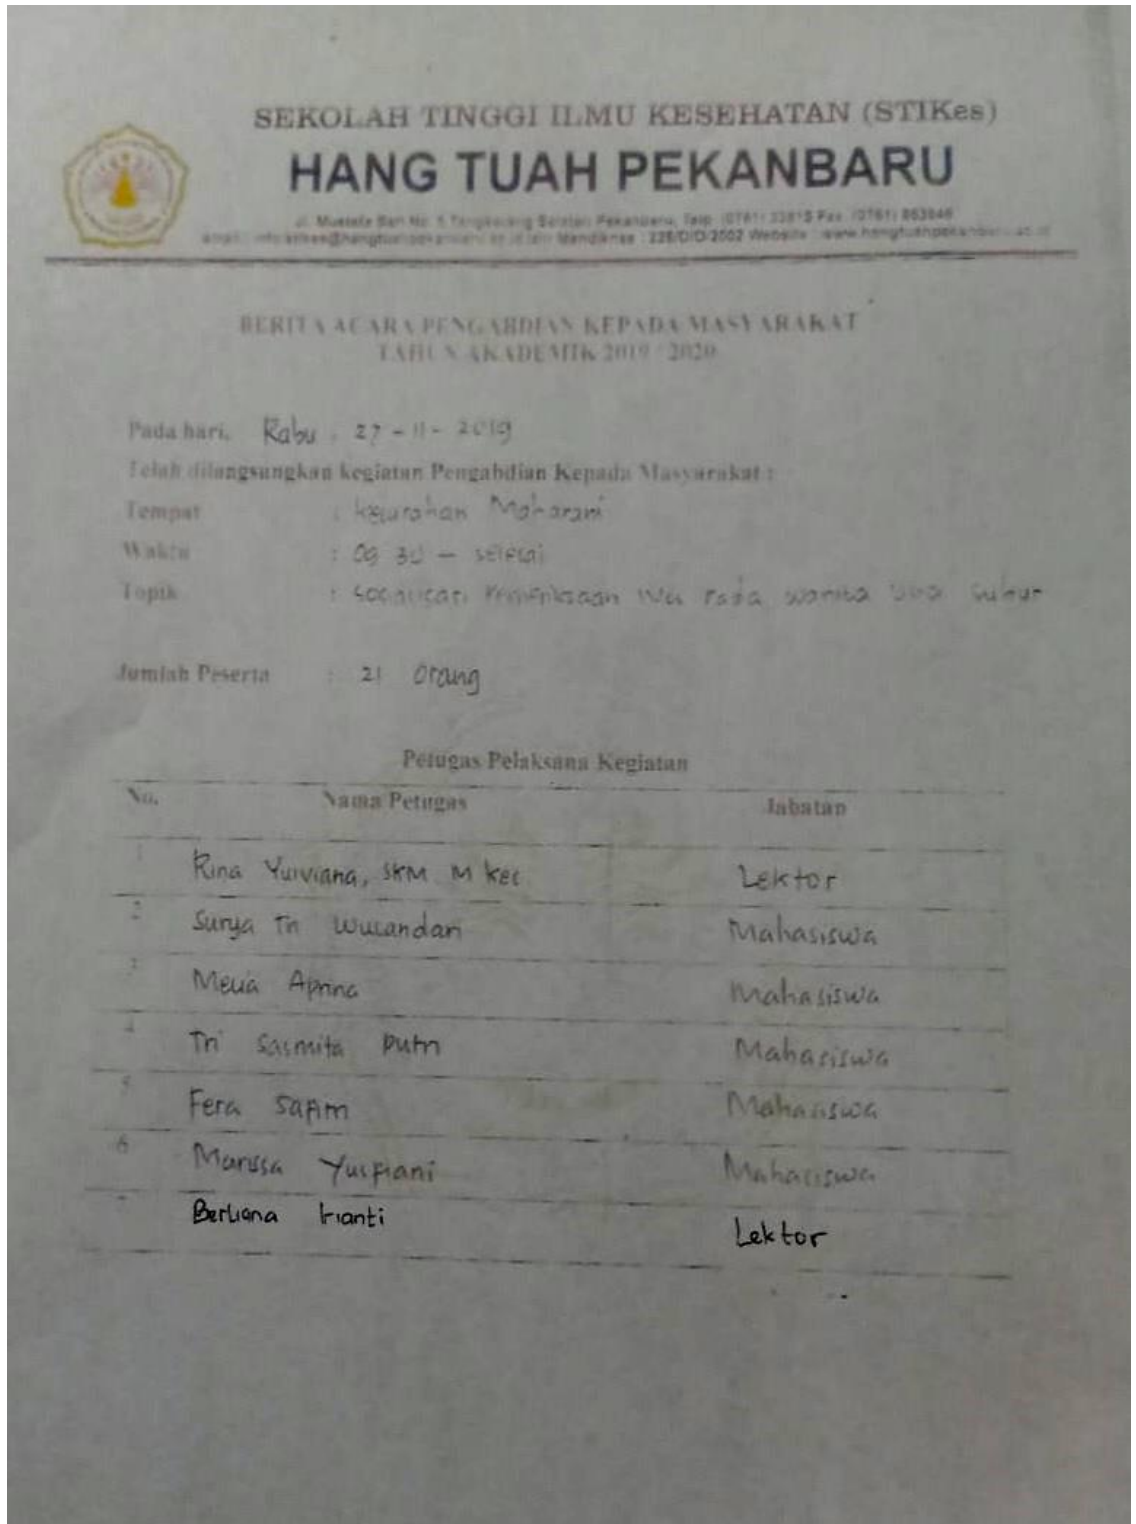 SEKOLAH TINGGI ILMU KESEHATAN (STIKes)
HANG TUAH PEKANBARU
Jl. Mustafa Sari No. 5 Tangkerang Selatan Pekanbaru, Telp. (0761) 33815 Fax. (0761) 863646
Mendiknas : 226/D/O/2002 Website : www.hangtuahpekanbaru.ac.id
BERITA ACARA PENGABDIAN KEPADA MASYARAKAT
TAHUN AKADEMIK 2019 / 2020
Pada hari, Rabu . 27 - 11 - 2019
Telah dilangsungkan kegiatan Pengabdian Kepada Masyarakat :
Tempat : Kelurahan Maharani
Waktu : 09 30 — selesai
Topik : Sosialisasi Pemeriksaan pada wanita usia subur
Jumlah Peserta : 21 Orang
Petugas Pelaksana Kegiatan
No. Nama Petugas Jabatan
1 Rina Yulviana, SKM M Kes Lektor
2 Surya Tri Wulandari Mahasiswa
3 Melia Aprina Mahasiswa
4 Tri Sasmita Putri Mahasiswa
5 Fera Mahasiswa
6 Marissa Yusfiani Mahasiswa
Berliana Irianti Lektor